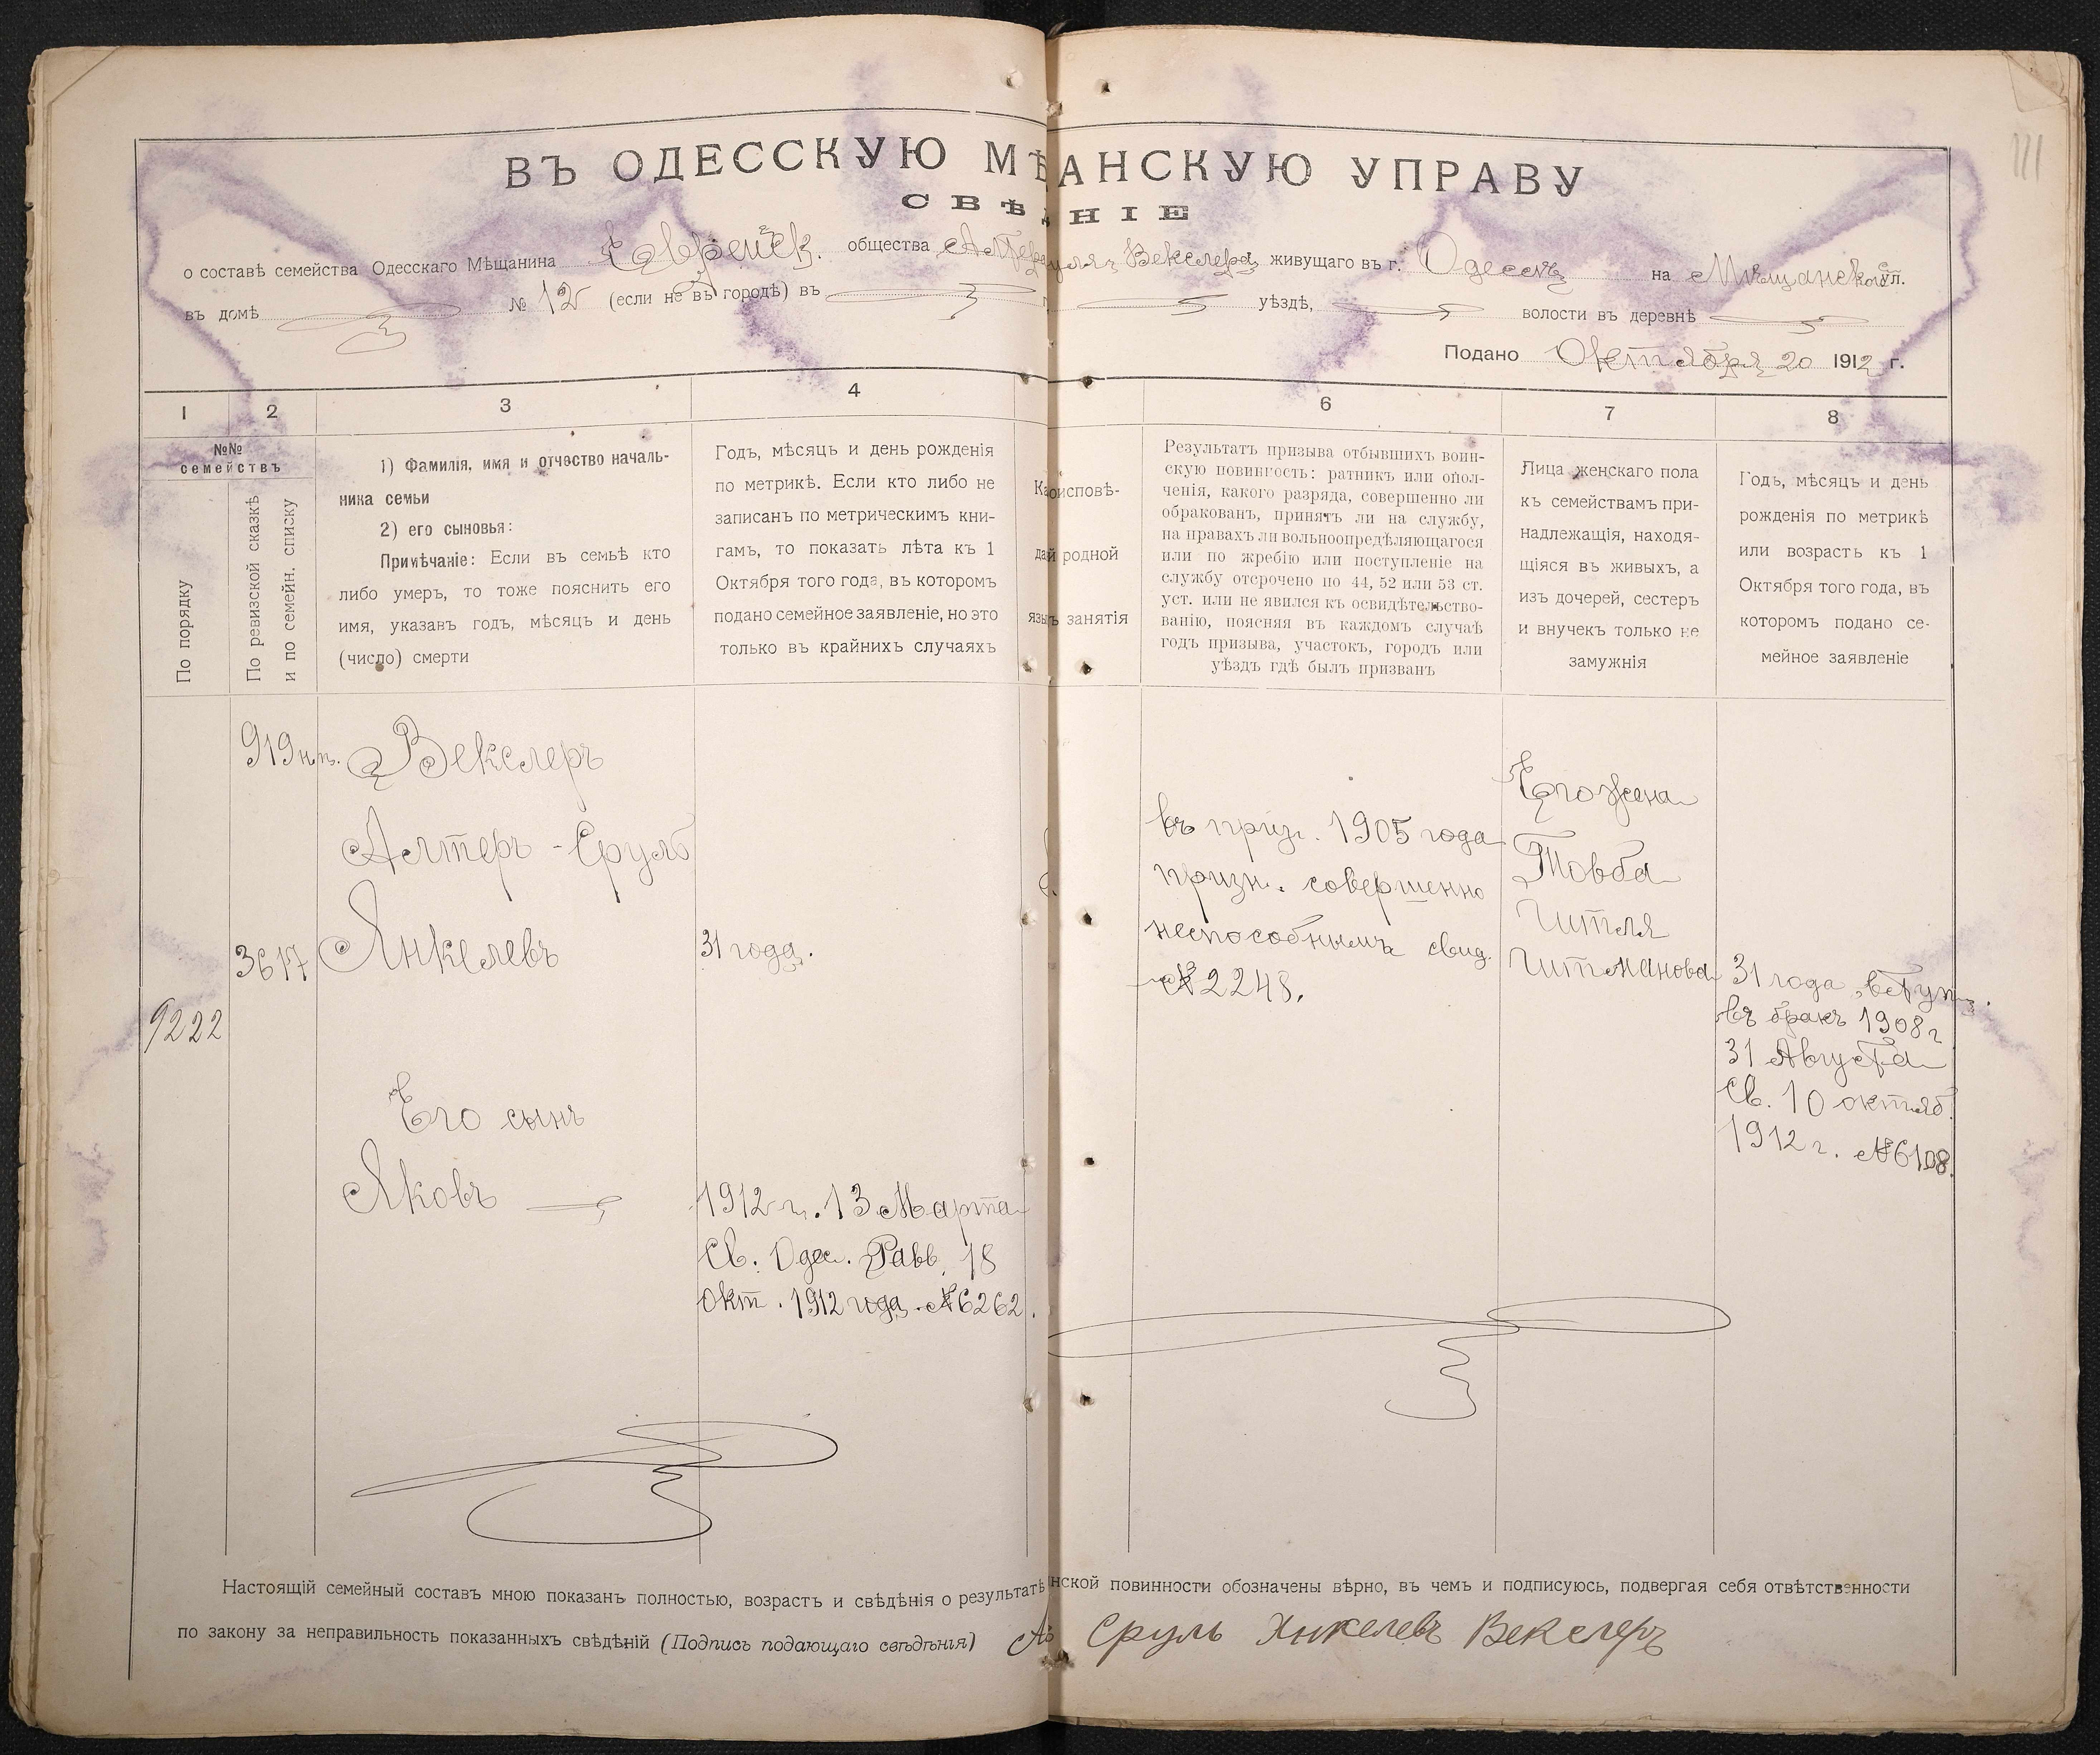 111
ВЪ ОДЕССКУЮ МѢ АНСКУЮ УПРАВУ
СВѢД НІЕ
о составѣ семейства Одесскаго Мѣщанина Еврейск. общества Алтера уля Векслера живущаго въ г. Одессѣ на Мѣщанской ул.
въ домѣ № 12 (если не въ городѣ) въ уѣздѣ, волости въ деревнѣ
Подано Октября 20 1912 г.
1 2 3 4 6 7 8
№№ семействъ
По порядку
По ревизской сказкѣ
и по семейн. списку
1) Фамилія, имя и отчество началь-
ника семьи
2) его сыновья:
Примѣчаніе: Если въ семьѣ кто
либо умеръ, то тоже пояснить его
имя, указавъ годъ, мѣсяцъ и день
(число) смерти
Годъ, мѣсяцъ и день рожденія
по метрикѣ. Если кто либо не
записанъ по метрическимъ кни-
гамъ, то показать лѣта къ 1
Октября того года, въ которомъ
подано семейное заявленіе, но это
только въ крайнихъ случаяхъ
Ка оисповѣ-
да й родной
язы ъ занятія
Результатъ призыва отбывшихъ воин-
скую повинность: ратникъ или опол-
ченія, какого разряда, совершенно ли
обракованъ, принятъ ли на службу,
на правахъ ли вольноопредѣляющагося
или по жребію или поступленіе на
службу отсрочено по 44, 52 или 53 ст.
уст. или не явился къ освидѣтельство-
ванію, поясняя въ каждомъ случаѣ
годъ призыва, участокъ, городъ или
уѣздъ гдѣ былъ призванъ
Лица женскаго пола
къ семействамъ при-
надлежащія, находя-
щіяся въ живыхъ, а
изъ дочерей, сестеръ
и внучекъ только не
замужнія
Годъ, мѣсяцъ и день
рожденія по метрикѣ
или возрастъ къ 1
Октября того года, въ
которомъ подано се-
мейное заявленіе
919 нп. Векслеръ
Алтеръ-Сруль
3617 Янкелевъ 31 года.
9222
Его сынъ
Яковъ
1912 г. 13 Марта
Св. Одес. Равв. 18
окт. 1912 года. №6262.
въ приз. 1905 года
призн. совершенно
неспособнымъ свид.
№ 2248.
Его жена
Товба
Гитля
Гитманова
31 года, вступ.
въ бракъ 1908 г
31 Августа
Св. 10 октяб.
1912 г. №6108.
Настоящій семейный составъ мною показанъ полностью, возрастъ и свѣдѣнія о результатѣ нской повинности обозначены вѣрно, въ чемъ и подписуюсь, подвергая себя отвѣтственности
по закону за неправильность показанныхъ свѣдѣній (Подпись подающаго свѣдѣнія) Сруль Янкелевъ Векслеръ